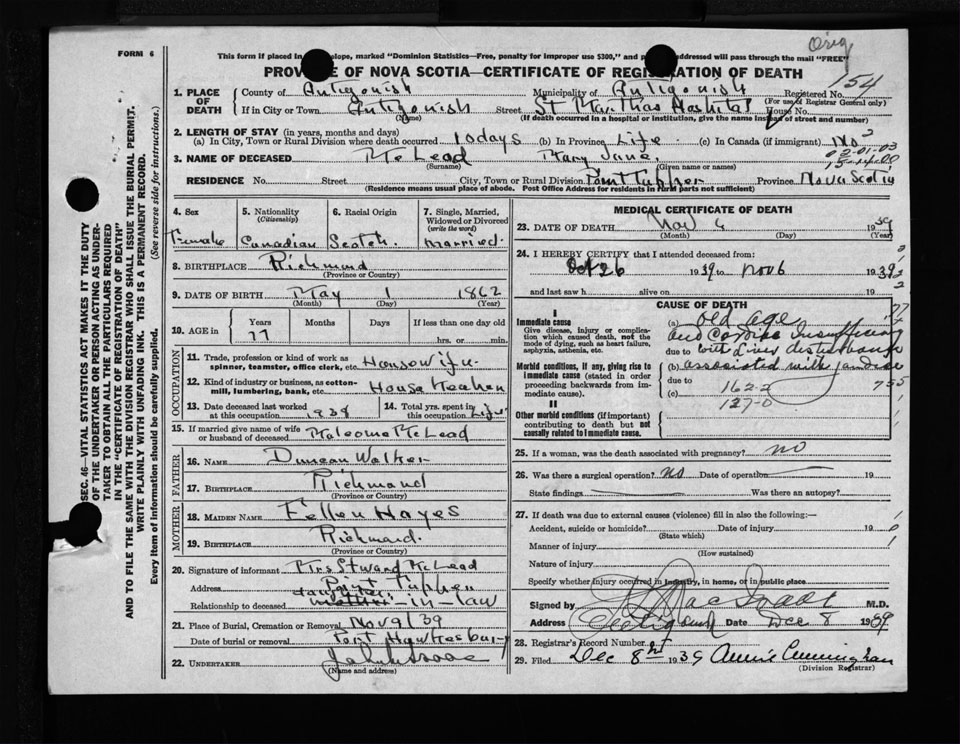 Orig
FORM 6
This form if placed in elope, marked "Dominion Statistics—Free, penalty for improper use $300," and addressed will pass through the mail "FREE"
PROVINCE OF NOVA SCOTIA—CERTIFICATE OF REGISTRATION OF DEATH
154
1. PLACE OF DEATH County of Antigonish Municipality of Antigonish Registered No.
(For use of Registrar General only)
If in City or Town Antigonish Street St Marthas Hospital House No.
(Name) (If death occurred in a hospital or institution, give the name instead of street and number)
2. LENGTH OF STAY (in years, months and days)
(a) In City, Town or Rural Division where death occurred 10 days (b) In Province Life (c) In Canada (if immigrant) No
3. NAME OF DECEASED McLead Mary Jane.
(Surname) (Given name or names)
RESIDENCE No. Street City, Town or Rural Division Point Tupper Province Nova Scotia
(Residence means usual place of abode. Post Office Address for residents in rural parts not sufficient)
4. Sex Female
5. Nationality (Citizenship) Canadian
6. Racial Origin Scotch.
7. Single, Married, Widowed or Divorced (write the word) Married.
8. BIRTHPLACE Richmond
(Province or Country)
9. DATE OF BIRTH May 1 1862
(Month) (Day) (Year)
10. AGE in Years Months Days If less than one day old
77 hrs. or min.
OCCUPATION
11. Trade, profession or kind of work as spinner, teamster, office clerk, etc. Housewife.
12. Kind of industry or business, as cotton-mill, lumbering, bank, etc. House Keeher
13. Date deceased last worked at this occupation 1938
14. Total yrs. spent in this occupation Life
15. If married give name of wife or husband of deceased Malcome McLead
FATHER
16. NAME Duncan Walker
17. BIRTHPLACE Richmand
(Province or Country)
MOTHER
18. MAIDEN NAME Fellen Hayes
19. BIRTHPLACE Richmand.
(Province or Country)
20. Signature of informant Mrs Stward McLead
Address Point Tupper
Relationship to deceased daughter in law
21. Place of Burial, Cremation or Removal Nov 9/39
Date of burial or removal Port Hawkesbury
22. UNDERTAKER
(Name and address)
MEDICAL CERTIFICATE OF DEATH
23. DATE OF DEATH Nov 6 1939
(Month) (Day) (Year)
24. I HEREBY CERTIFY that I attended deceased from:
Oct 26 1939 to Nov 6 1939
and last saw h alive on 19
CAUSE OF DEATH
I
Immediate cause
Give disease, injury or complication which caused death, not the mode of dying, such as heart failure, asphyxia, asthenia, etc.
Morbid conditions, if any, giving rise to immediate cause (stated in order proceeding backwards from immediate cause).
II
Other morbid conditions (if important) contributing to death but not causally related to immediate cause.
(a) old age
and Cardiac Insufficiency
due to with Liver disturbance
(b) associated with Jaundice
due to
(c)
162-2
127-0
77
755
25. If a woman, was the death associated with pregnancy? no
26. Was there a surgical operation? no Date of operation 19
State findings Was there an autopsy?
27. If death was due to external causes (violence) fill in also the following:—
Accident, suicide or homicide? Date of injury 19
(State which)
Manner of injury
(How sustained)
Nature of injury
Specify whether injury occurred in industry, in home, or in public place
Signed by M.D.
Address Antigonish Date Dec 8 1939
28. Registrar's Record Number
29. Filed Dec 8th 1939 Annie Cunningham
(Division Registrar)
SEC. 46—VITAL STATISTICS ACT MAKES IT THE DUTY
OF THE UNDERTAKER OR PERSON ACTING AS UNDER-
TAKER TO OBTAIN ALL THE PARTICULARS REQUIRED
IN THE "CERTIFICATE OF REGISTRATION OF DEATH"
AND TO FILE THE SAME WITH THE DIVISION REGISTRAR WHO SHALL ISSUE THE BURIAL PERMIT.
WRITE PLAINLY WITH UNFADING INK. THIS IS A PERMANENT RECORD.
Every item of information should be carefully supplied. (See reverse side for instructions.)